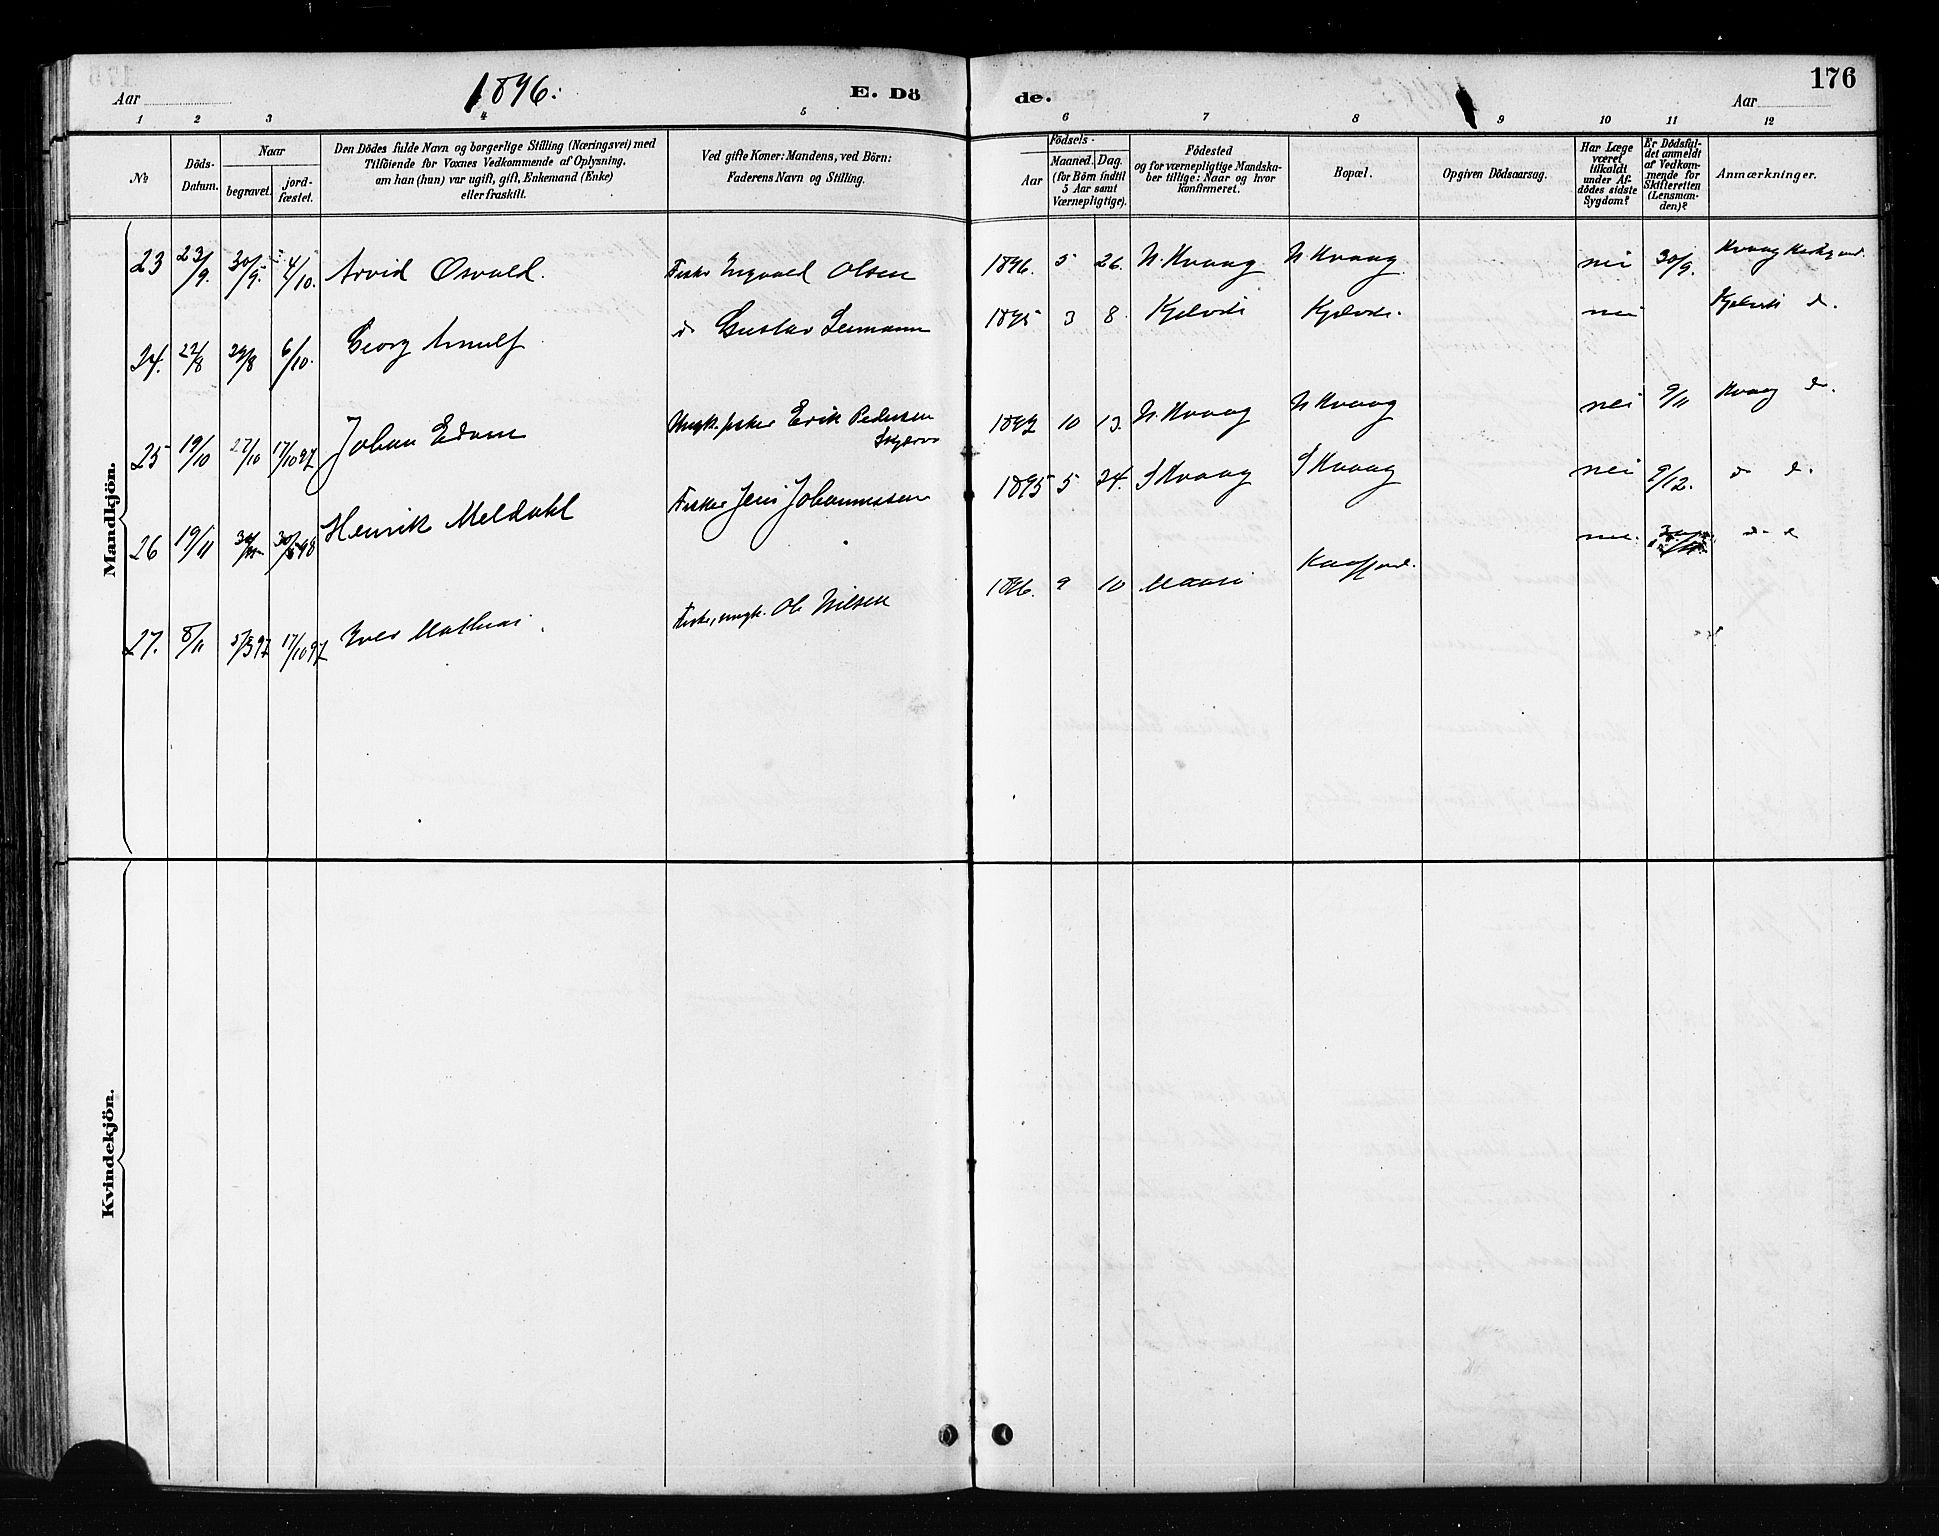 Aar 1896. E. Dö de. Aar 176
1 2 3 4 5 6 7 8 9 10 11 12
№
Döds-
Datum.
Naar
begravet.
jord-
fæstet.
Den Dödes fulde Navn og borgerlige Stilling (Næringsvei) med
Tilföiende for Voxnes Vedkommende af Oplysning,
om han (hun) var ugift, gift, Enkemand (Enke)
eller fraskilt.
Ved gifte Koner: Mandens, ved Börn:
Faderens Navn og Stilling.
Födsels-
Aar
Maaned. Dag.
(for Börn indtil
5 Aar samt
Værnepligtige).
Födested
og for værnepligtige Mandska-
ber tillige: Naar og hvor
konfirmeret.
Bopæl.
Opgiven Dödsaarsag.
Har Læge
været
tilkaldt
under Af-
dödes sidste
Sygdom?
Er Dödsfal-
det anmeldt
af Vedkom-
mende for
Skifteretten
(Lensman-
den)?
Anmærkninger.
Mandkjön.
23 23/9. 30/9. 4/10. Arvid Osvald. Fisker Ingvald Olsen 1896. 5 26. N Kvaag N Kvaag nei 30/9. Kvaag
24. 22/8 29/8 6/10. Georg Arnulf do Gustav 1895 3 8. nei
25 19/10 27/10 17/10 97 Johan Edvin Ungk. fisker Erik Pedersen 10 13. N. Kvaag N Kvaag nei 9/11 Kvaag do
26 19/11 98 Henrik Meldahl Fisker Jens Johannessen 1895 5 24. S Kvaag S Kvaag nei 9/12. do do
27. 8/11 97 17/10 97 Iver Mathias Fisker, ungk. Ole Nilsen 1896. 9 10 Maasö Kaafjord.
Kvindekjön.